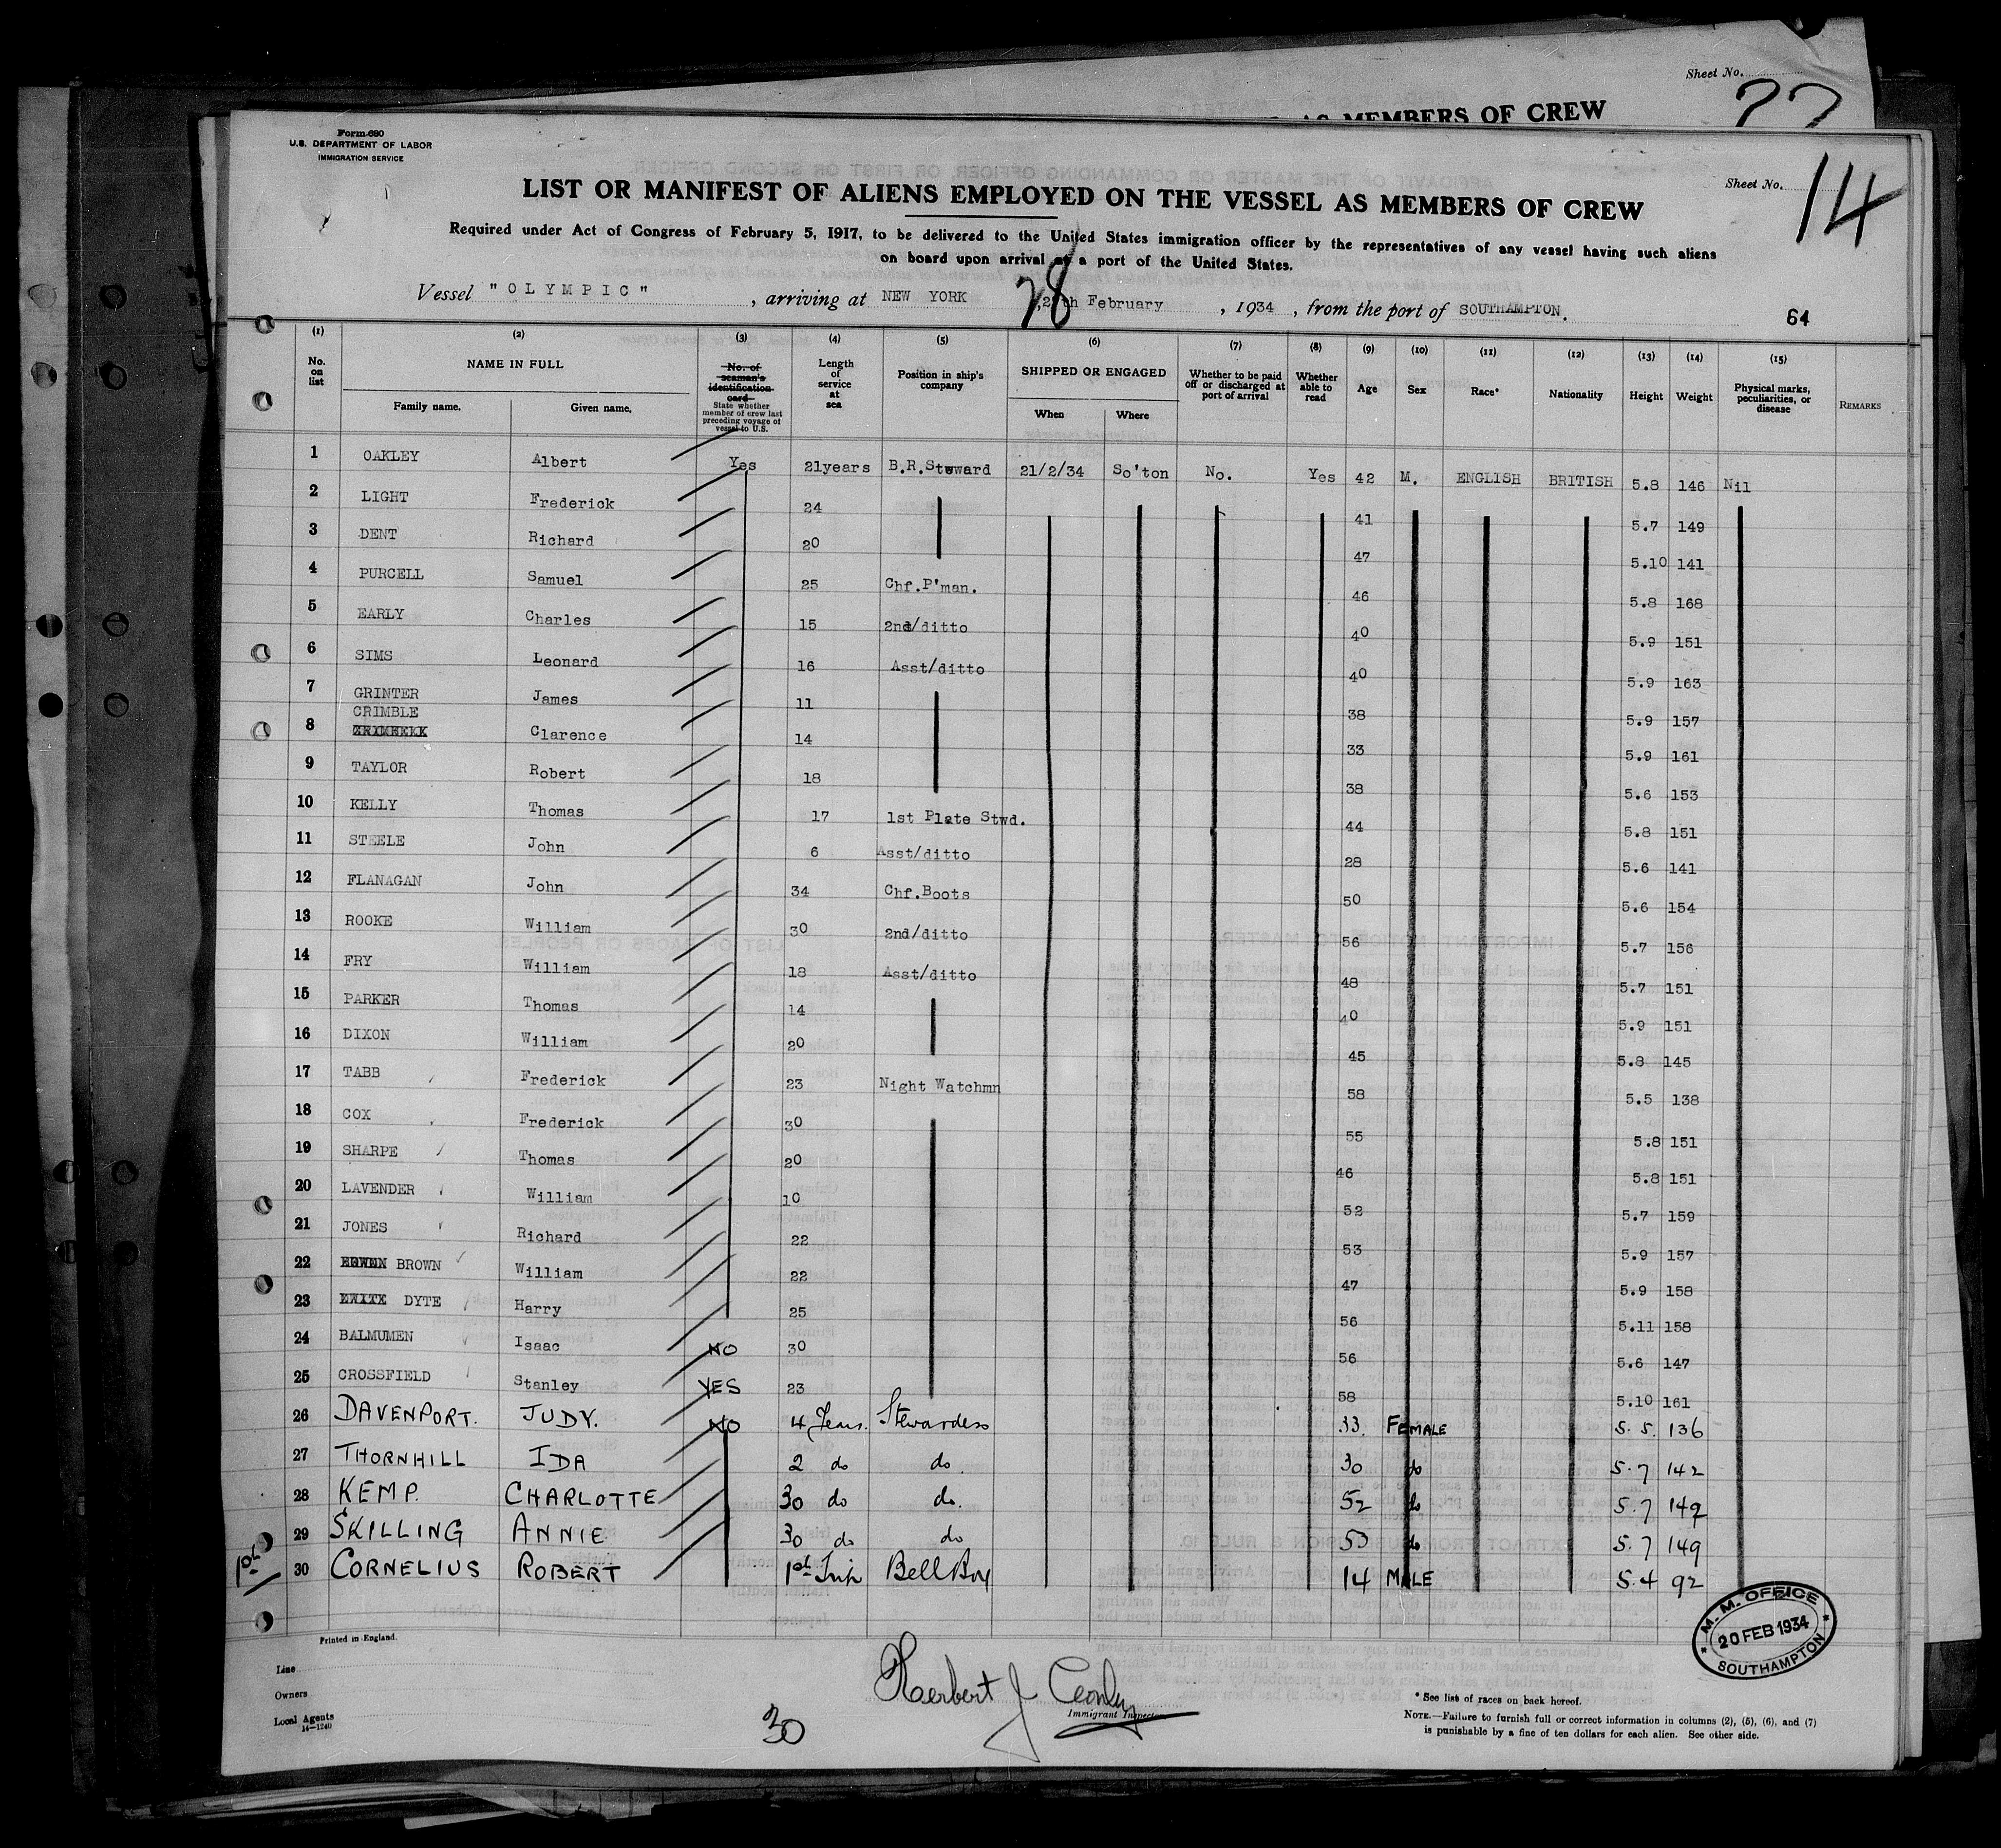 Sheet No.
AS MEMBERS OF CREW
Form 680
U.S. DEPARTMENT OF LABOR
IMMIGRATION SERVICE
Sheet No. 14
LIST OR MANIFEST OF ALIENS EMPLOYED ON THE VESSEL AS MEMBERS OF CREW
Required under Act of Congress of February 5, 1917, to be delivered to the United States immigration officer by the representatives of any vessel having such aliens
on board upon arrival at a port of the United States.
Vessel "OLYMPIC", arriving at NEW YORK 28 th February, 1934, from the port of SOUTHAMPTON. 64
(1) (2) (3) (4) (5) (6) (7) (8) (9) (10) (11) (12) (13) (14) (15)
No. on list NAME IN FULL Family name. Given name. No. of seaman's identification card State whether member of crew last preceding voyage of vessel to U.S. Length of service at sea Position in ship's company SHIPPED OR ENGAGED When Where Whether to be paid off or discharged at port of arrival Whether able to read Age Sex Race* Nationality Height Weight Physical marks, peculiarities, or disease REMARKS
1 OAKLEY Albert Yes 21years B.R.Steward 21/2/34 So'ton No. Yes 42 M. ENGLISH BRITISH 5.8 146 Nil
2 LIGHT Frederick 24 41 5.7 149
3 DENT Richard 20 47 5.10 141
4 PURCELL Samuel 25 Chf.P'man. 46 5.8 168
5 EARLY Charles 15 2nd/ditto 40 5.9 151
6 SIMS Leonard 16 Asst/ditto 40 5.9 163
7 GRINTER James 11 38 5.9 157
8 CRIMBLE Clarence 14 33 5.9 161
9 TAYLOR Robert 18 38 5.6 153
10 KELLY Thomas 17 1st Plate Stwd. 44 5.8 151
11 STEELE John 6 Asst/ditto 28 5.6 141
12 FLANAGAN John 34 Chf.Boots 50 5.6 154
13 ROOKE William 30 2nd/ditto 56 5.7 156
14 FRY William 18 Asst/ditto 48 5.7 151
15 PARKER Thomas 14 40 5.9 151
16 DIXON William 20 45 5.8 145
17 TABB Frederick 23 Night Watchmn 58 5.5 138
18 COX Frederick 30 55 5.8 151
19 SHARPE Thomas 20 46 5.8 151
20 LAVENDER William 10 52 5.7 159
21 JONES Richard 22 53 5.9 157
22 BROWN William 22 47 5.9 158
23 DYTE Harry 25 56 5.11 158
24 BALMUMEN Isaac NO 30 56 5.6 147
25 CROSSFIELD Stanley YES 23 58 5.10 161
26 DAVENPORT. JUDY. NO 4 Years. Stewardess 33. FEMALE 5.5. 136
27 THORNHILL IDA 2 do do. 30 do 5.7 142
28 KEMP. CHARLOTTE 30 do do. 52 do 5.7 149
29 SKILLING ANNIE 30 do do 50 do 5.7 149
1st 30 CORNELIUS ROBERT 1st Trip Bell Boy 14 MALE 5.4 92
M. M. OFFICE
20 FEB 1934
SOUTHAMPTON
Printed in England.
Line
Owners
Local Agents
14-1240
30
Herbert J
Immigrant Inspector
* See list of races on back hereof.
NOTE.—Failure to furnish full or correct information in columns (2), (5), (6), and (7)
is punishable by a fine of ten dollars for each alien. See other side.